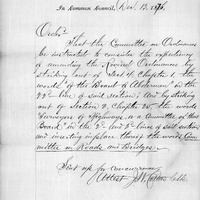 In Common Council, Dec. 12, 1876.
Ord'd.
That the Committee on Ordinances
be instructed to consider the expediency
of amending the Revised Ordinances by
striking out of Sect. 4, Chapter 1, the
words "of the Board of Aldermen" in the
22nd line of said section; and by striking
out of Section 2, Chapter 25, the words
"Surveyors of Highways, or a Committee of that
Board" in the 2nd and 3rd lines of said section
and inserting in place thereof the words Com-
mittee on Roads and Bridges.
Sent up for concurrence.
Attest